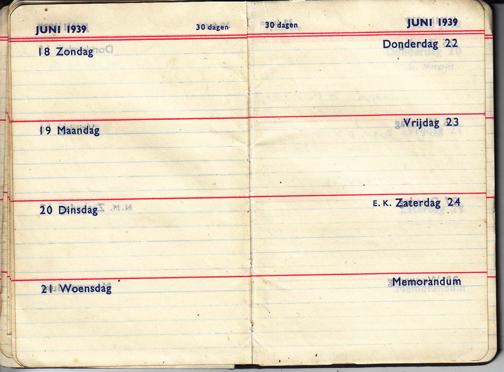 JUNI 1939 30 dagen
18 Zondag
19 Maandag
20 Dinsdag
21 Woensdag
30 dagen JUNI 1939
Donderdag 22
Vrijdag 23
E.K. Zaterdag 24
Memorandum